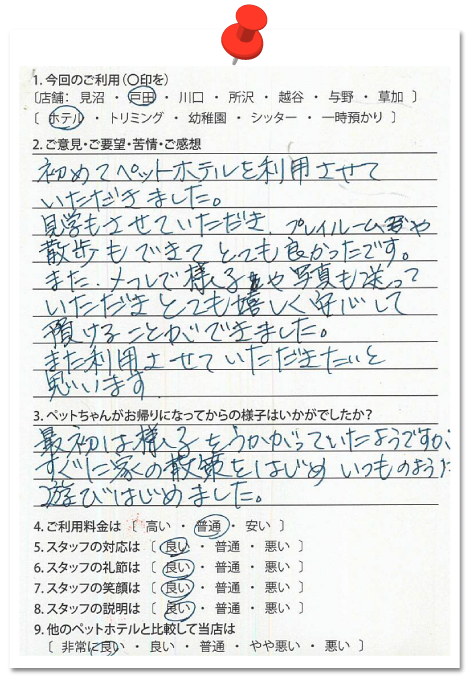 1. 今回のご利用(〇印を)
〔店舗： 見沼 ・ 戸田 ・ 川口 ・ 所沢 ・ 越谷 ・ 与野 ・ 草加 〕
〔 ホテル ・ トリミング ・ 幼稚園 ・ シッター ・ 一時預かり 〕
2. ご意見・ご要望・苦情・ご感想
初めてペットホテルを利用させて
いただきました。
見学もさせていただき、プレイルームや
散歩もできてとても良かったです。
また、メールで様子や写真も送って
いただきとても嬉しく安心して
預けることができました。
また利用させていただきたいと
思います
3. ペットちゃんがお帰りになってからの様子はいかがでしたか？
最初は様子をうかがっていたようですが
すぐに家の散策をはじめ いつものように
遊びはじめました。
4. ご利用料金は 〔 高い ・ 普通 ・ 安い 〕
5. スタッフの対応は 〔 良い ・ 普通 ・ 悪い 〕
6. スタッフの礼節は 〔 良い ・ 普通 ・ 悪い 〕
7. スタッフの笑顔は 〔 良い ・ 普通 ・ 悪い 〕
8. スタッフの説明は 〔 良い ・ 普通 ・ 悪い 〕
9. 他のペットホテルと比較して当店は
〔 非常に良い ・ 良い ・ 普通 ・ やや悪い ・ 悪い 〕